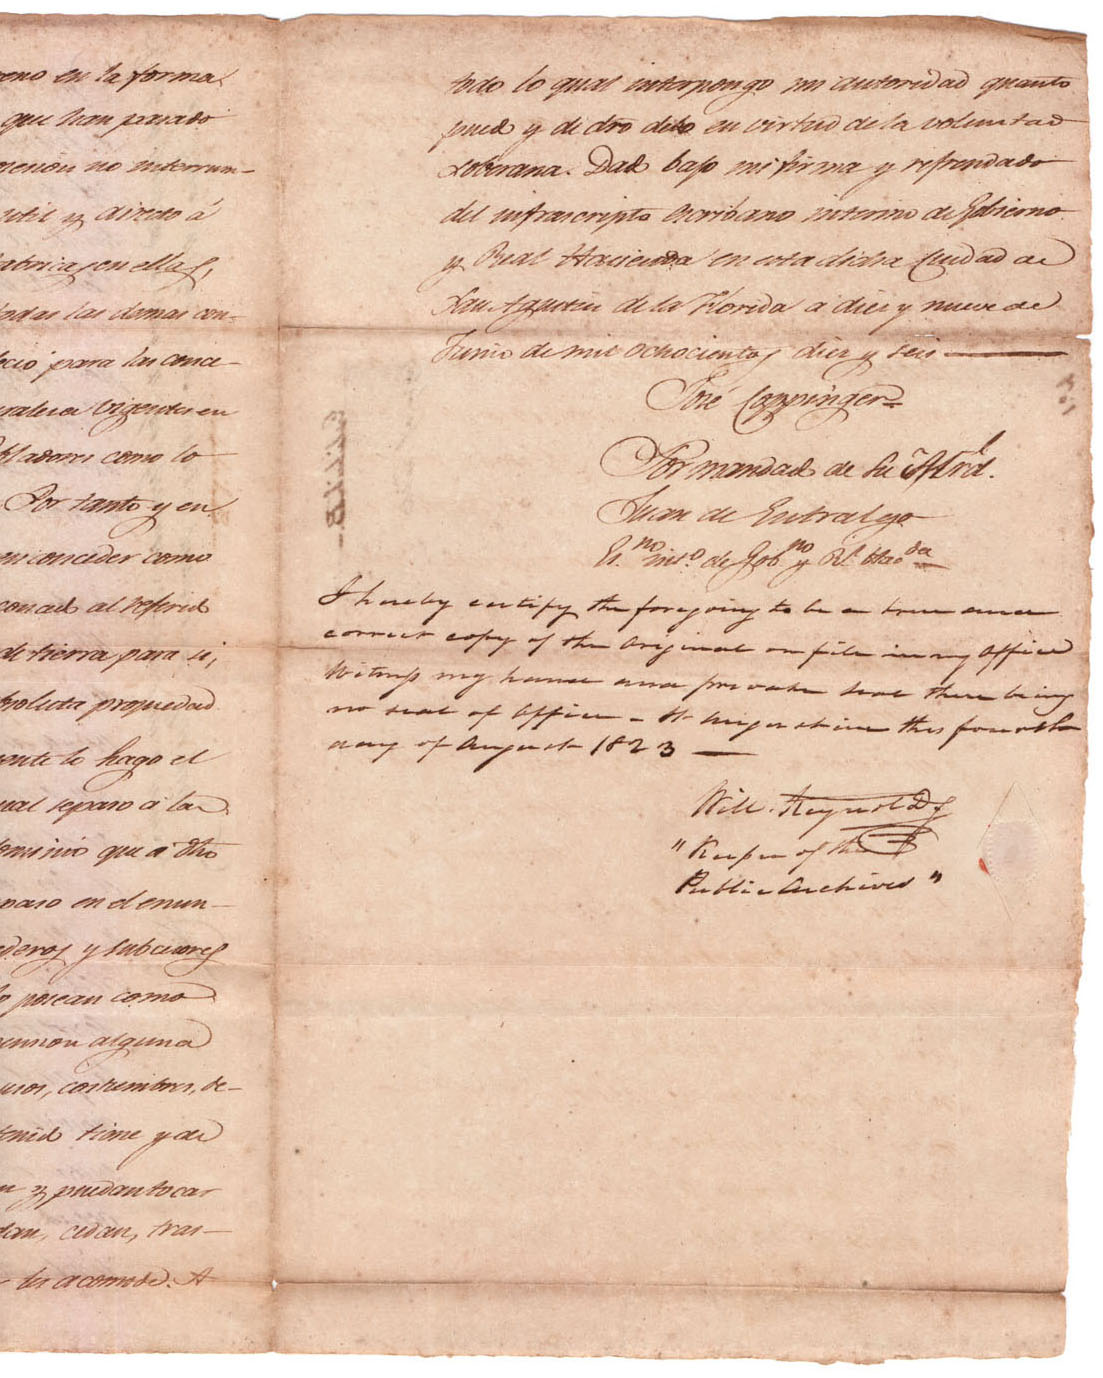 en la forma
que han pasado
no interrum-
util y directo á
fabricas en ellas,
todas las demas con-
para las conce-
vigentes en
Pobladores como lo
Por tanto y en
en conceder como
al referid
de tierra para si,
absoluta propiedad
lo hago el
separo a la
dominio que á dho
en el enun-
herederos y subcesores
lo posean como
alguna
usos, costumbres, de-
tenid tiene y de
y puedan tocar
cedan, tras-
les acomode. A
todo lo qual interpongo mi autoridad quanto
pued y de dro debo en virtud de la voluntad
Soberana. Dad bajo mi firma y refrendado
del infrascripto Escribano interino de Gobierno
y Real Hacienda en esta dicha Ciudad de
San Agustin de la Florida a diez y nueve de
Junio de mil ochocientos diez y seis —
José Coppinger=
Por mandad de su
Juan de Entralgo
Es.no int.o de Gob.no y Rl. Hac.da
I hereby certify the foregoing to be a true and
correct copy of the Original on file in my Office
Witness my hand and private seal there being
no seal of Office - St Augustine this fourth
day of August 1823 —
Will. Reynolds
" Keeper of the
Public Archives "